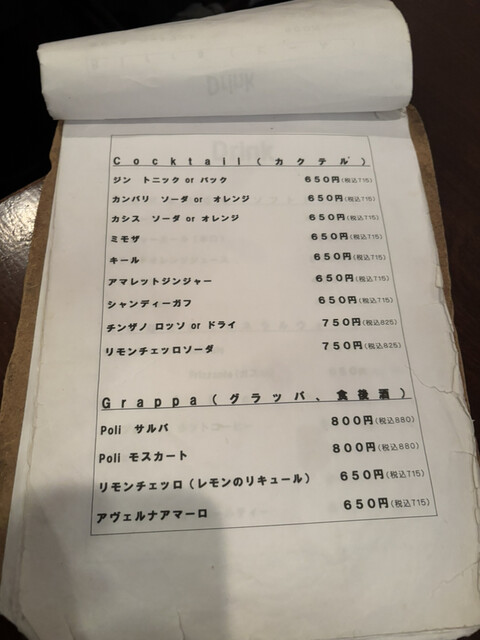 Drink
Drink
Cocktail(カクテル)
ジン　トニック or バック　650円(税込715)
カンパリ　ソーダ or　オレンジ　650円(税込715)
カシス　ソーダ or オレンジ　650円(税込715)
ミモザ　650円(税込715)
キール　650円(税込715)
アマレットジンジャー　650円(税込715)
シャンディーガフ　650円(税込715)
チンザノ ロッソ or ドライ　750円(税込825)
リモンチェッロソーダ　750円(税込825)
Grappa(グラッパ、食後酒)
Poli　サルパ　800円(税込880)
Poli モスカート　800円(税込880)
リモンチェッロ(レモンのリキュール)　650円(税込715)
アヴェルナアマーロ　650円(税込715)